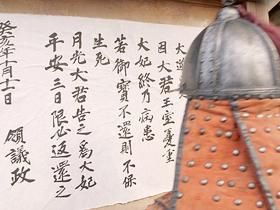 大逆
因大君王室憂重
大妃終乃病患
若御寶不還則不保
生死
月光大君告之爲大妃
平安三日限必返還之
癸亥年十月十二日
領議政